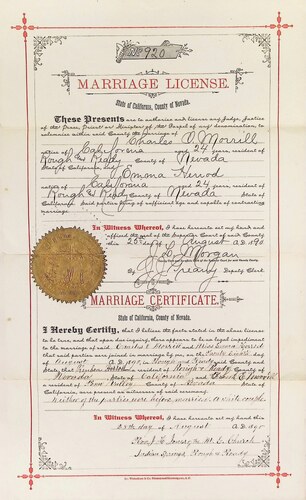 No. 920
MARRIAGE LICENSE.
State of California, County of Nevada.
These Presents are to authorize and license any Judge, Justice
of the Peace, Priest or Minister of the Gospel of any denomination, to
solemnize within said County the Marriage of
Charles V. Morrill
native of California aged 24 years, resident of
Rough and Ready County of Nevada
State of California, and
Emma Herrod
native of California aged 24 years, resident of
Rough & Ready County of Nevada
State of California. Said parties being of sufficient age and capable of contracting
marriage.
In Witness Whereof, I have hereunto set my hand and
affixed the seal of the Superior Court of said County
this 25 day of August A.D. 1890
J. L. Morgan
Deputy Clerk
MARRIAGE CERTIFICATE.
State of California, County of Nevada.
I Hereby Certify, that I believe the facts stated in the above license
to be true, and that upon due inquiry, there appears to be no legal impediment
to the marriage of said Charles V. Morrill and Miss Emma Herrod
that said parties were joined in marriage by me, on the day
of August A.D. 1890, in Rough and Ready said County and
State; that of Rough & Ready County of
Nevada State of California and
a resident of County of Nevada State of
California, were present as witnesses of said ceremony.
In Witness Whereof, I have hereunto set my hand this
day of August A.D. 1890
M. E. Church
Rough & Ready